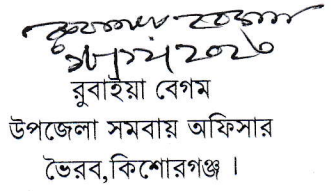 রুবাইয়া বেগম
উপজেলা সমবায় অফিসার
ভৈরব,কিশোরগঞ্জ ।